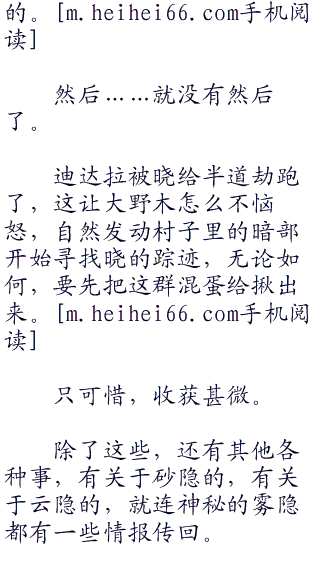 的。[m.heihei66.com手机阅
读]
然后……就没有然后
了。
迪达拉被晓给半道劫跑
了，这让大野木怎么不恼
怒，自然发动村子里的暗部
开始寻找晓的踪迹，无论如
何，要先把这群混蛋给揪出
来。[m.heihei66.com手机阅
读]
只可惜，收获甚微。
除了这些，还有其他各
种事，有关于砂隐的，有关
于云隐的，就连神秘的雾隐
都有一些情报传回。